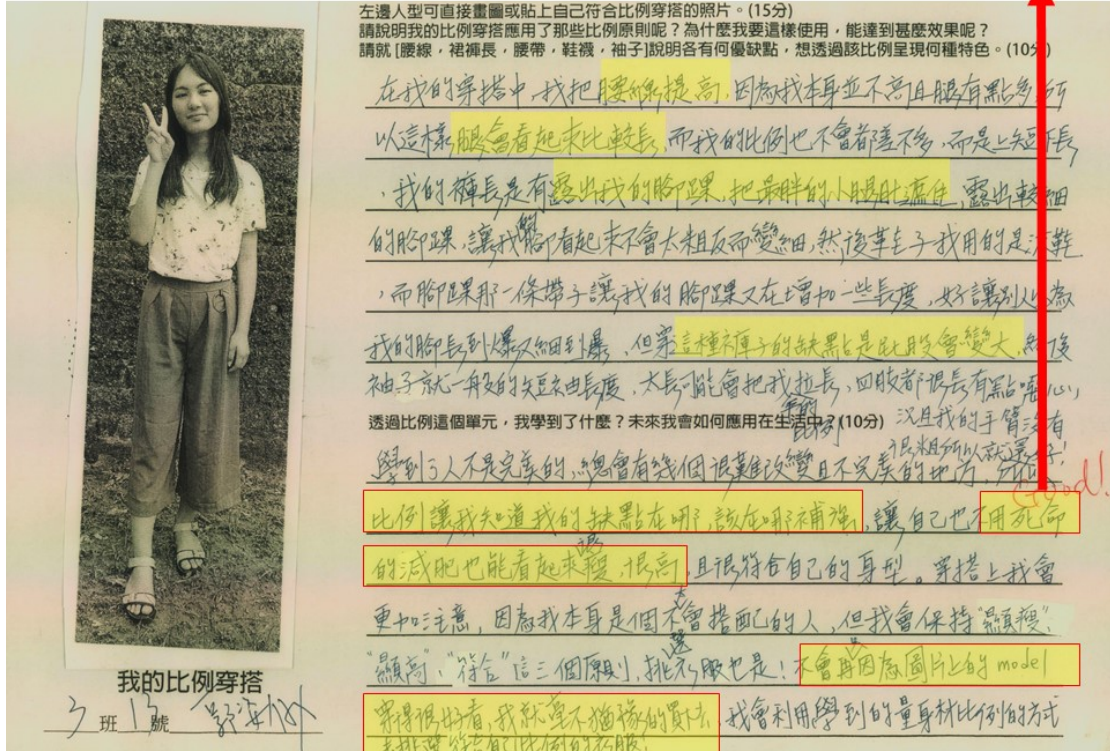 左邊人型可直接畫圖或貼上自己符合比例穿搭的照片。(15分)
請說明我的比例穿搭應用了那些比例原則呢？為什麼我要這樣使用，能達到甚麼效果呢？
請就 [腰線，裙褲長，腰帶，鞋襪，袖子]說明各有何優缺點，想透過該比例呈現何種特色。(10分)
在我的穿搭中,我把腰線提高,因為我本身並不高且腿有點多,所
以這樣腿會看起來比較長,而我的比例也不會都差不多,而是上短下長
,我的褲長是有露出我的腳踝,把最胖的小腿肚遮住,露出較細
的腳踝,讓我的腳看起來不會太粗反而變細,然後鞋子我用的是涼鞋
,而腳踝那一條帶子讓我的腳踝又在增加一些長度,好讓別人以為
我的腳長到爆又細到爆,但穿這種褲子的缺點是屁股會變大,然後
袖子就一般的短袖長度,太長可能會把我拉長,四肢都很長有點噁心,
況且我的手臂沒有
很粗所以就還好!
透過比例這個單元，我學到了什麼？未來我會如何應用在生活中？(10分)
學到了人不是完美的,總會有幾個很難改變且不完美的地方,
Good!
比例讓我知道我的缺點在哪,該在哪補強,讓自己也不用死命
的減肥也能看起來瘦,很高,且很符合自己的身型。穿搭上我會
更加注意,因為我本身是個不太會搭配的人,但我會保持"顯瘦"
"顯高","符合"這三個原則,挑選衣服也是!不會再因為圖片上的model
穿得很好看,我就毫不猶豫的買去,我會利用學到的量身材比例的方式
去挑選符合自己比例的衣服!
我的比例穿搭
3班13號